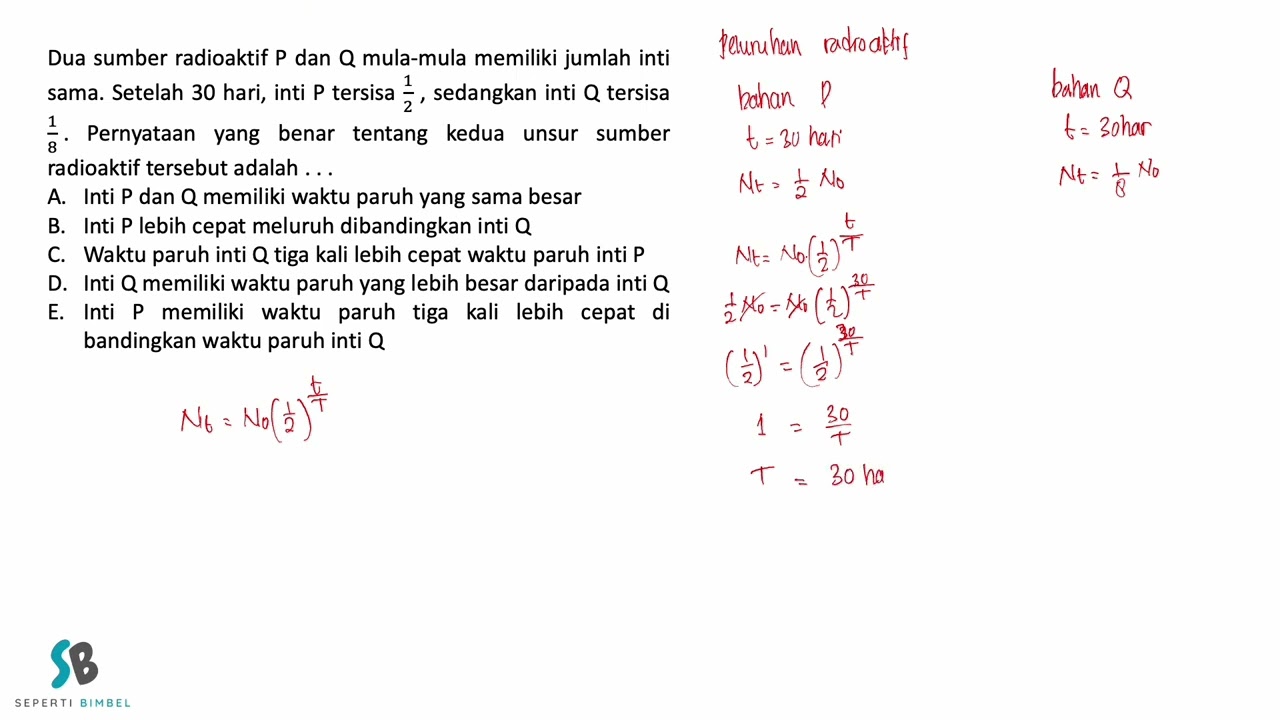 Dua sumber radioaktif P dan Q mula-mula memiliki jumlah inti
sama. Setelah 30 hari, inti P tersisa 1/2 , sedangkan inti Q tersisa
1/8 . Pernyataan yang benar tentang kedua unsur sumber
radioaktif tersebut adalah . . .
A. Inti P dan Q memiliki waktu paruh yang sama besar
B. Inti P lebih cepat meluruh dibandingkan inti Q
C. Waktu paruh inti Q tiga kali lebih cepat waktu paruh inti P
D. Inti Q memiliki waktu paruh yang lebih besar daripada inti Q
E. Inti P memiliki waktu paruh tiga kali lebih cepat di
bandingkan waktu paruh inti Q
Nt = No(1/2)^(t/T)
Peluruhan radioaktif
bahan P
t = 30 hari
Nt = 1/2 No
Nt = No.(1/2)^(t/T)
1/2 No = No (1/2)^(30/T)
(1/2)^1 = (1/2)^(30/T)
1 = 30/T
T = 30 ha
bahan Q
t = 30 har
Nt = 1/8 No
SB
SEPERTI BIMBEL